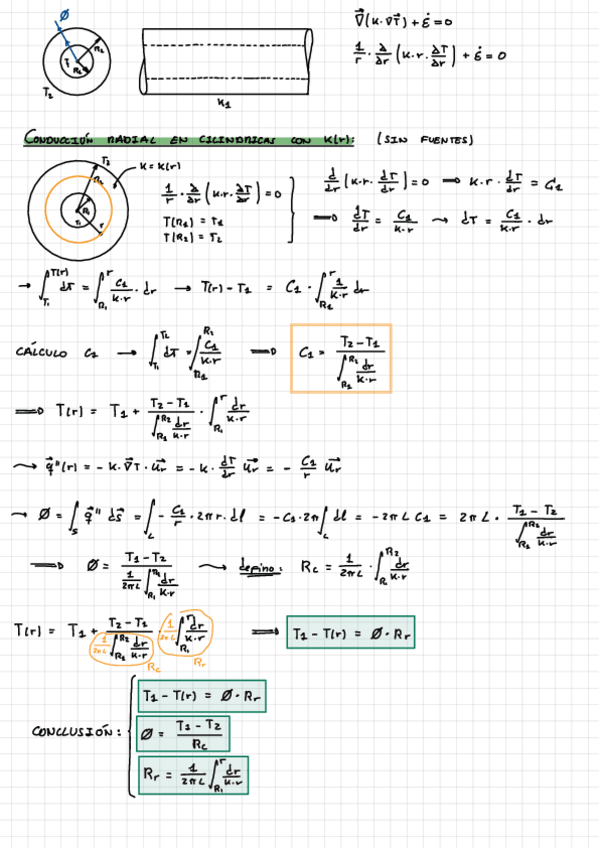 ∅
R₂
T₁
R₁
T₂
K₁
∇⃗(K·∇⃗T) + ε̇ = 0
1/r · d/dr (K·r· dT/dr) + ε̇ = 0
CONDUCCIÓN RADIAL EN CILINDRICAS CON K(r): (SIN FUENTES)
T₂
R₂
K = K(r)
R₁
T₁
r
1/r · d/dr (K·r· dT/dr) = 0
T(R₁) = T₁
T(R₂) = T₂
d/dr (K·r· dT/dr) = 0 ⟹ K·r· dT/dr = C₁
⟹ dT/dr = C₁/(K·r) ⇝ dT = C₁/(K·r) · dr
→ ∫_{T₁}^{T(r)} dT = ∫_{R₁}^{r} C₁/(K·r) · dr → T(r) - T₁ = C₁ · ∫_{R₁}^{r} 1/(K·r) dr
CÁLCULO C₁ → ∫_{T₁}^{T₂} dT = ∫_{R₁}^{R₂} C₁/(K·r) ⟹ C₁ = (T₂ - T₁)/(∫_{R₁}^{R₂} dr/(K·r))
⟹ T(r) = T₁ + (T₂ - T₁)/(∫_{R₁}^{R₂} dr/(K·r)) · ∫_{R₁}^{r} dr/(K·r)
⇝ q⃗"(r) = - K·∇⃗T · u⃗r = - K· dT/dr u⃗r = - C₁/r u⃗r
→ ∅ = ∫_S q⃗" ds⃗ = ∫_L - C₁/r · 2πr · dl = - C₁ · 2π ∫_L dl = - 2πL C₁ = 2πL · (T₁ - T₂)/(∫_{R₁}^{R₂} dr/(K·r))
⟹ ∅ = (T₁ - T₂)/(1/(2πL) ∫_{R₁}^{R₂} dr/(K·r)) ⇝ defino: Rc = 1/(2πL) · ∫_{R}^{R₂} dr/(K·r)
T(r) = T₁ + (T₂ - T₁)/(1/(2πL) ∫_{R₁}^{R₂} dr/(K·r)) · 1/(2πL) ∫_{R₁}^{r} dr/(K·r) ⟹ T₁ - T(r) = ∅ · Rr
Rc
Rr
CONCLUSIÓN:
T₁ - T(r) = ∅ · Rr
∅ = (T₁ - T₂)/Rc
Rr = 1/(2πL) ∫_{R₁}^{r} dr/(K·r)